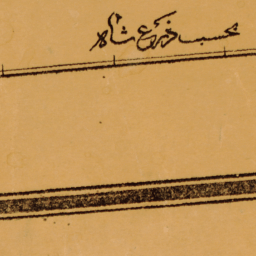 بحسب ذرع شاه